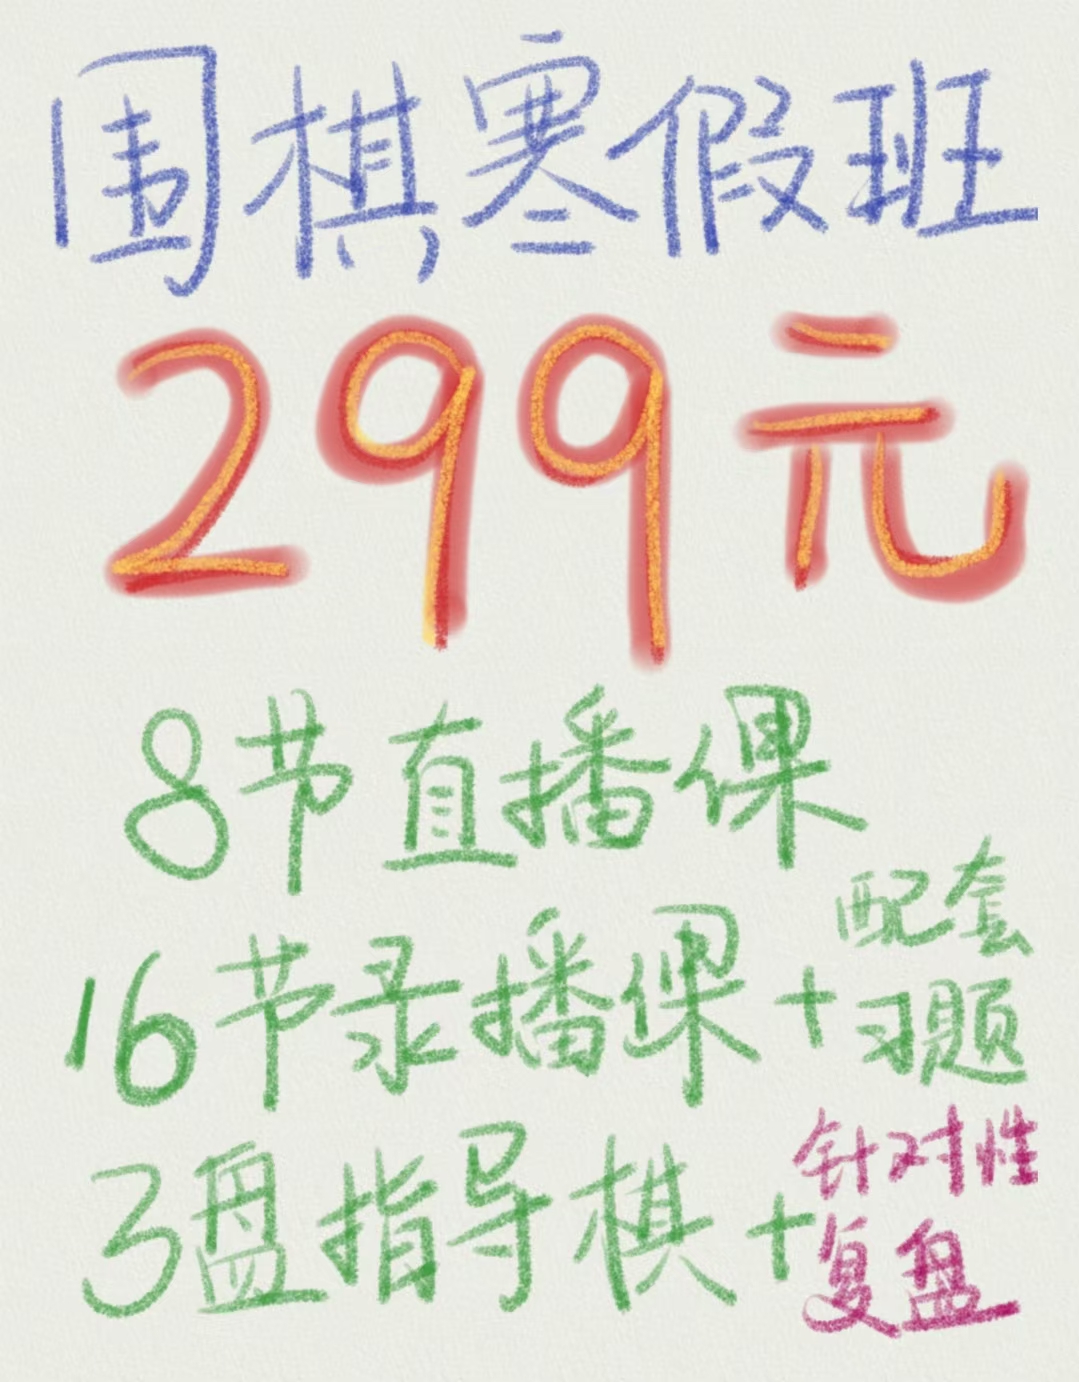 围棋寒假班
299元
8节直播课
16节录播课+配套习题
3盘指导棋+针对性复盘